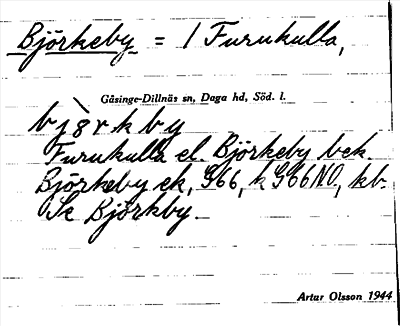 Björkeby = 1 Furukulla,
Gåsinge-Dillnäs sn, Daga hd, Söd. l.
Furukulla el. Björkeby bek
Björkeby ek, G66, k G66NO, kb.
Se Björkby
Artur Olsson 1944